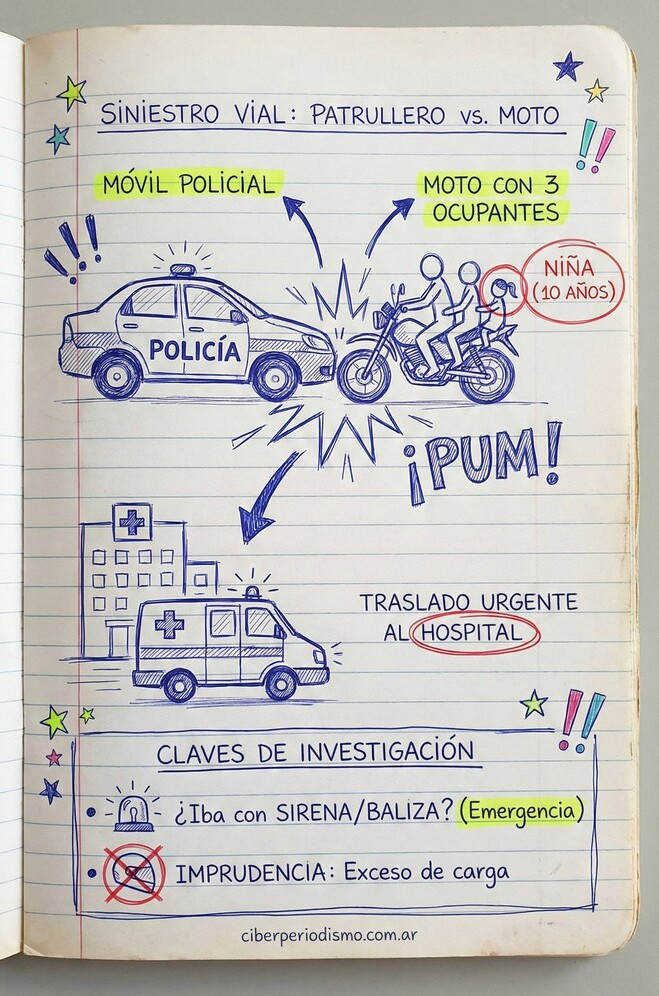 SINIESTRO VIAL: PATRULLERO vs. MOTO
MÓVIL POLICIAL
MOTO CON 3
OCUPANTES
NIÑA
(10 AÑOS)
POLICÍA
¡PUM!
TRASLADO URGENTE
AL HOSPITAL
CLAVES DE INVESTIGACIÓN
¿Iba con SIRENA/BALIZA? (Emergencia)
IMPRUDENCIA: Exceso de carga
ciberperiodismo.com.ar